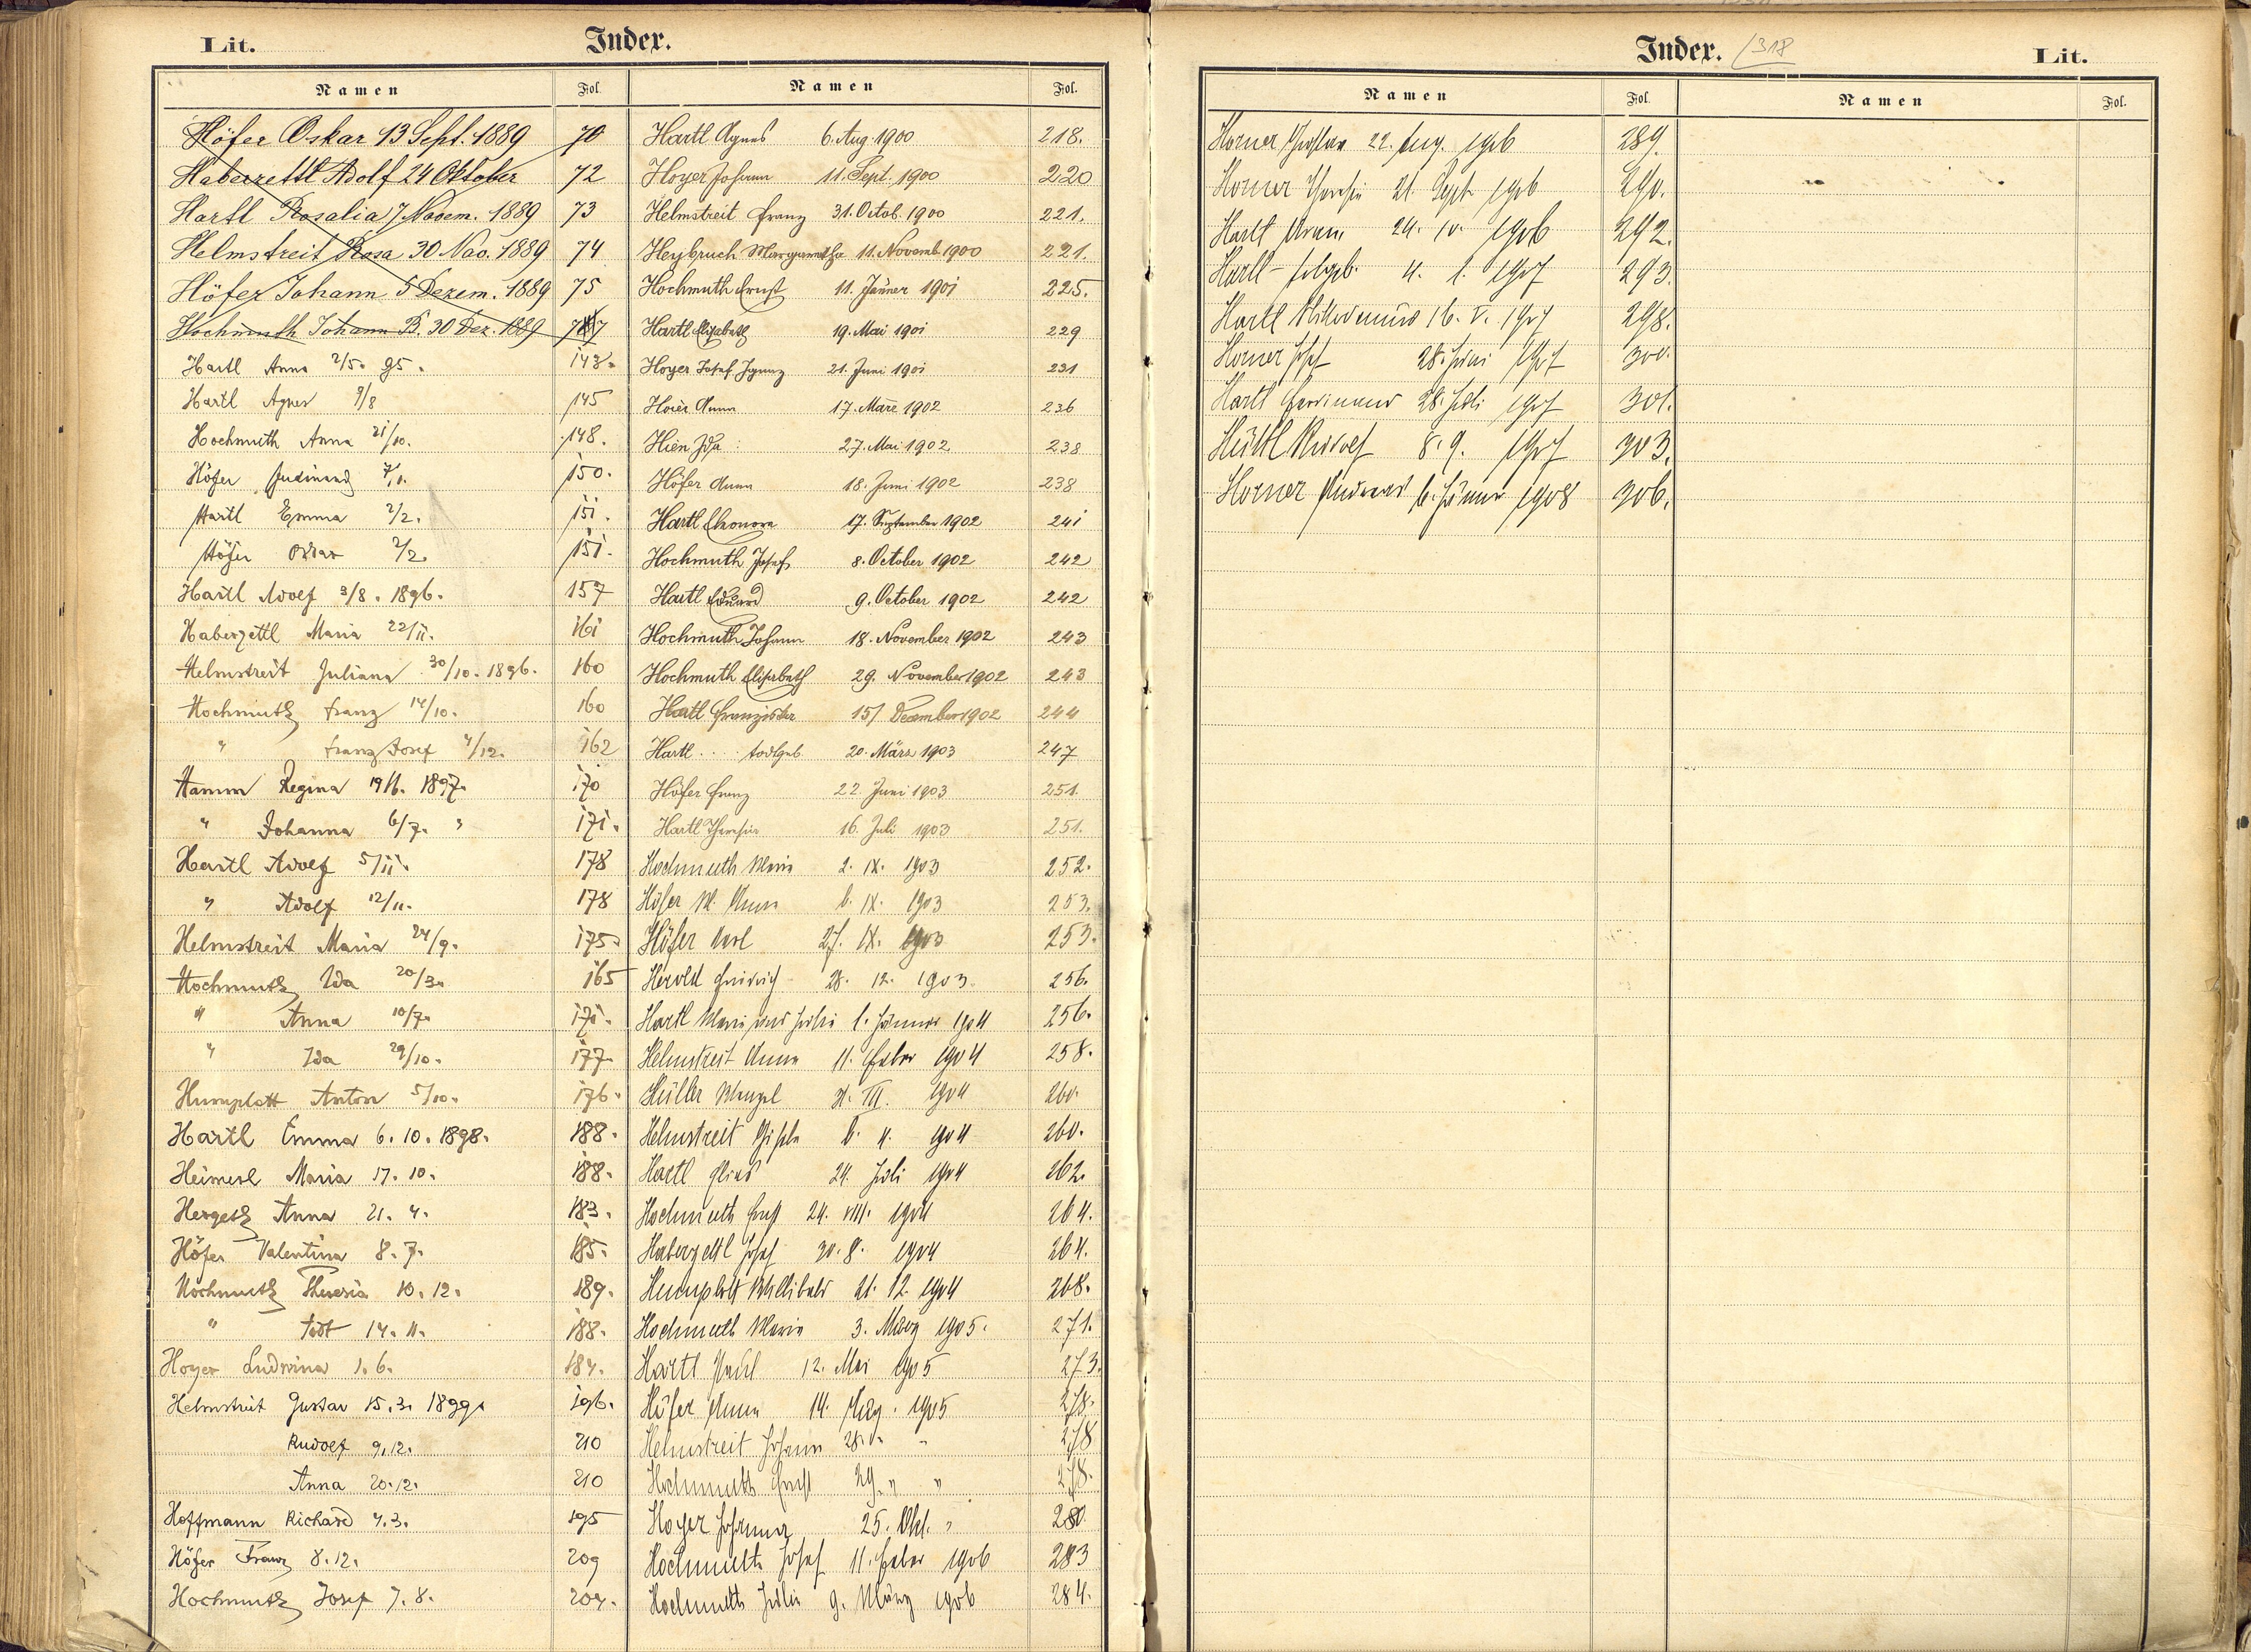 Lit.
Index.
Namen Fol. Namen Fol.
Höfer Oskar 13 Sept. 1889 70
Haberzettl Adolf 24 Oktober 72
Hartl Rosalia 7 Novem. 1889 73
Helmstreit Rosa 30 Nov. 1889 74
Höfer Johann 5 Dezem. 1889 75
Hochmuth Johann B. 30 Dez. 1889
Hartl Anna 2/5. 95. 143.
Hartl Agnes 9/8 145
Hochmuth Anna 21/10. 148.
Höfer Ferdinand 150.
Hartl Emma 2/2. 151.
Höfer Oskar 2/2. 151.
Hartl Adolf 3/8. 1896. 157
Haberzettl Maria 22/11. 161
Helmstreit Juliana 30/10. 1896. 160
Hochmuth Franz 14/10. 160
" Franz Josef 4/12. 162
Hamm Regina 1897. 170
" Johanna 6/7. " 171.
Hartl Adolf 5/11. 178
" Adolf 12/11. 178
Helmstreit Maria 24/9. 175.
Hochmuth Ida 20/3. 165
" Anna 10/7. 171.
" Ida 29/10. 177.
Humplott Anton 5/10. 176.
Hartl Emma 6. 10. 1898. 188.
Heimerl Maria 17. 10. 188.
Hergeth Anna 21. 4. 183.
Höfer Valentina 8. 7. 185.
Hochmuth Theresia 10. 12. 189.
" Todt 14. 11. 188.
Hoyer Ludwina 1. 6. 184.
Helmstreit Gustav 15. 3. 1899. 196.
Rudolf 9. 12. 210
Anna 20. 12. 210
Hoffmann Richard 4. 3. 195
Höfer Franz 8. 12. 209
Hochmuth Josef 7. 8. 204.
Hartl Agnes 6. Aug. 1900 218.
Hoyer Johann 11. Sept. 1900 220
Helmstreit Franz 31. Octob. 1900 221.
Heybruch Margaretha 11. Novemb. 1900 221.
Hochmuth Ernst 11. Jänner 1901 225.
Hartl Elisabeth 19. Mai 1901 229
Hoyer Josef Ignaz 21. Juni 1901 231
Hoier Anna 17. März 1902 236
Hien Ida 27. Mai 1902 238
Höfer Anna 18. Juni 1902 238
Hartl Eleonora 17. September 1902 241
Hochmuth Josef 8. October 1902 242
Hartl Eduard 9. October 1902 242
Hochmuth Johann 18. November 1902 243
Hochmuth Elisabeth 29. November 1902 243
Hartl Franziska 15/ December 1902 244
Hartl . . . todtgeb. 20. März 1903 247
Höfer Franz 22. Juni 1903 251.
Hartl Theresia 16. Juli 1903 251.
Hochmuth Maria 2. IX. 1903 252.
Höfer M. Anna 6. IX. 1903 253.
Höfer Karl 27. IX. 1903 253.
Herold Friedrich 28. 12. 1903. 256.
Hartl Maria und Julia 1. Jänner 1904 256.
Helmstreit Anna 11. Feber 1904 258.
Müller Wenzel III. 1904 260.
Helmstreit Gisela 6. 1904 260.
Hartl 24. Juli 1904 262.
Hochmuth Ernst 24. VIII. 1904 264.
Haberzettl Josef 30. 8. 1904 264.
Humplott Willibald 21. 12. 1904 268.
Hochmuth Maria 3. März 1905. 271.
Hartl Paul 12. Mai 1905 273.
Höfer Anna 14. Aug. 1905 278.
Helmstreit Johann 28. " 278
Hochmuth Ernst 29. " " 278.
Hoyer Johanna 25. Okt. " 280
Hochmuth Josef 11. Feber 1906 283
Hochmuth Julia 9. März 1906 284.
Index. /318
Lit.
Namen Fol. Namen Fol.
Horner Gustav 22. Aug. 1906 289.
Horner Theresia 21. Sept 1906 290.
Hartl 24. 10. 1906 292.
Hartl - todtgeb. 4. 1. 1907 293.
Hartl 16. V. 1907 298.
Horner Josef 28. Juni 1907 300.
Hartl Ferdinand 28. Juli 1907 301.
Hüttl Rudolf 8. 9. 1907 303.
Horner Andreas 6. Jänner 1908 306.